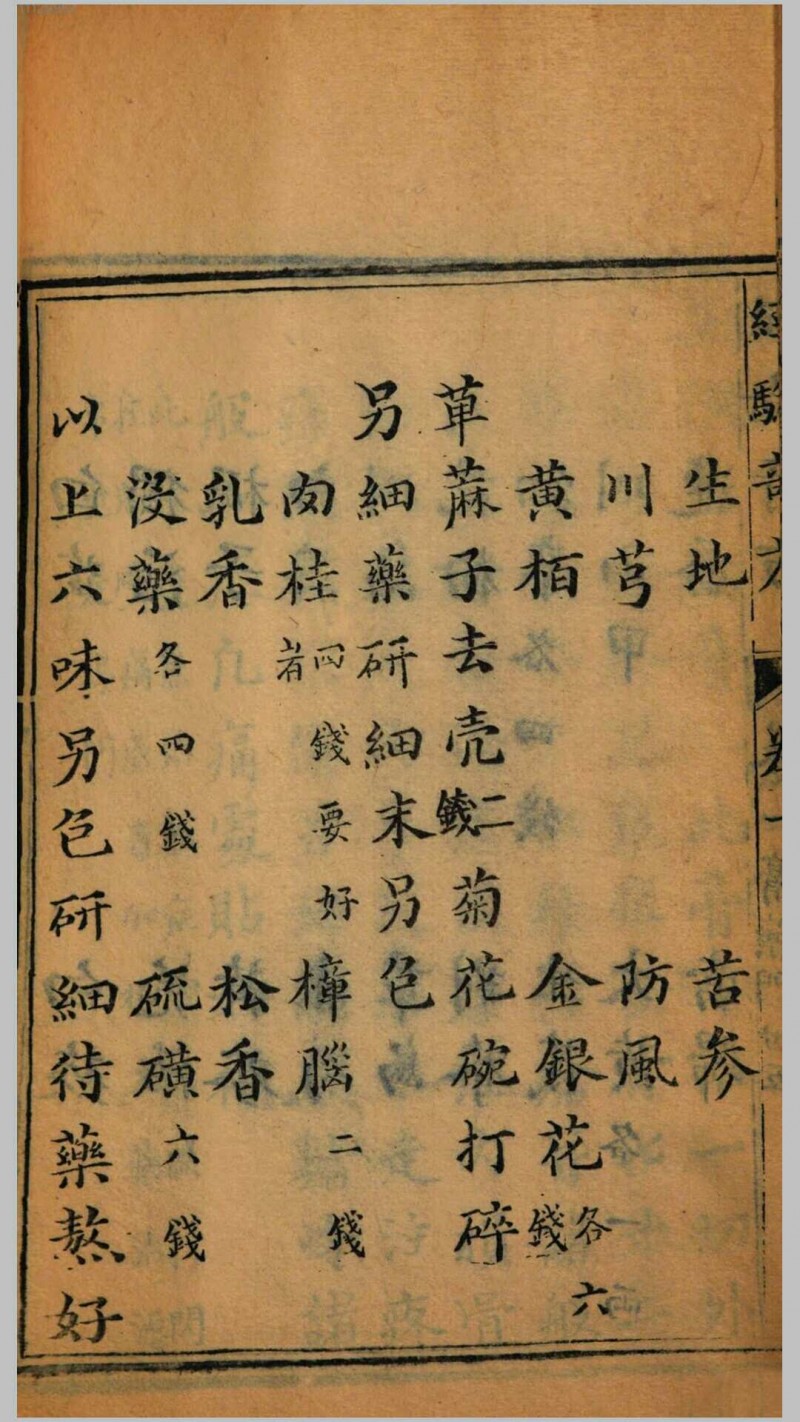 經驗
卷一
生地 苦參
川芎 防風
黄栢 金銀花各六錢
萆蔴子去壳二錢 菊花碗打碎
另細藥研細末另色
肉桂四錢要好者 樟腦二錢
乳香 松香
没藥各四錢 硫磺六錢
以上六味另色研細待藥熬好